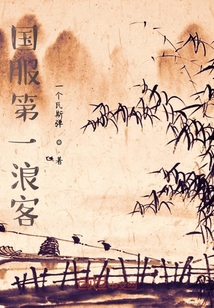 国服第一浪客
一个氏斯弹 著